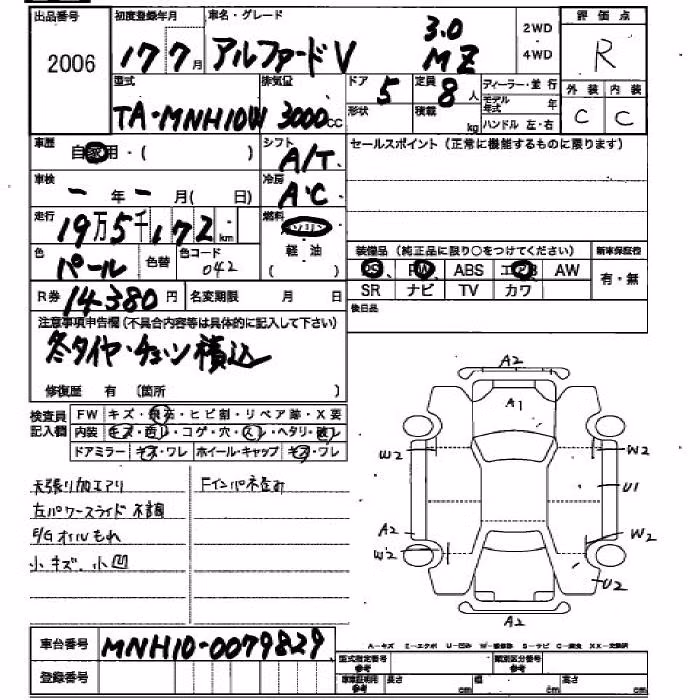 出品番号 初度登録年月 車名・グレード 2WD 評価点
2006 17 7月 アルファードV 3.0 MZ ・ 4WD R
型式 排気量 ドア 定員 ディーラー・並行 外装 内装
TA-MNH10W 3000cc 5 8人 モデル年式 年 C C
形状 積載 kg ハンドル 左・右
車歴 自家用・( ) シフト A/T セールスポイント(正常に機能するものに限ります)
車検 ー年ー月( 日) 冷房 A・C
走行 19万5千172km 燃料
色 パール 色替 色コード 042 軽・油 ( )
装備品(純正品に限り○をつけてください) 新車保証書
PS PW ABS エアB AW 有・無
SR ナビ TV カワ
R券 14,380円 名変期限 月 日 後日品
注意事項申告欄(不具合内容等は具体的に記入して下さい)
冬タイヤ・チェーン積込
修復歴 有 (箇所 )
検査員記入欄 FW キズ・飛石・ヒビ割・リペア跡・X要
内装 キズ・色レ・コゲ・穴・スレ・ヘタリ・破レ
ドアミラー キズ・ワレ ホイール・キャップ キズ・ワレ
天張り加工アリ Fインパネ歪み
左パワースライド不調
E/Gオイルもれ
小キズ、小凹
A2
A1
W2 W2
U1
A2 W2
W2 U2
A2
車台番号 MNH10-0079829
登録番号
A−キズ E−エクボ U−凹み W−補修跡 S−サビ C−腐食 XX−交換済
型式指定番号 参考 類別区分番号 参考
車庫証明用 参考 長さ cm 幅 cm 高さ cm